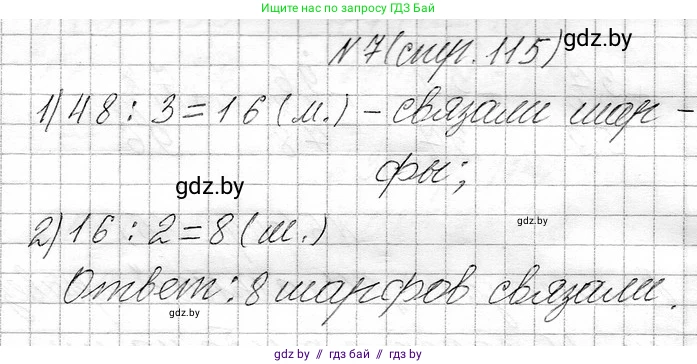 Ищите нас по запросу ГДЗ Бай
N 7 (стр. 115) gdz.by
1) 48 : 3 = 16 (м.) – связали шар-
фы;
gdz.by
gdz.by
2) 16 : 2 = 8 (ш.)
Ответ: 8 шарфов связали.
gdz.by
gdz.by // гдз бай // гдз by